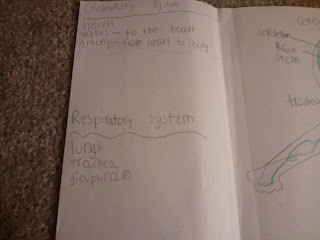 circulatory System
heart
vanes - to the heart
Artery - from heart to body
Respiratory system
lungs
trachea
diaphram
cerebellum
Brain
stem
trachea